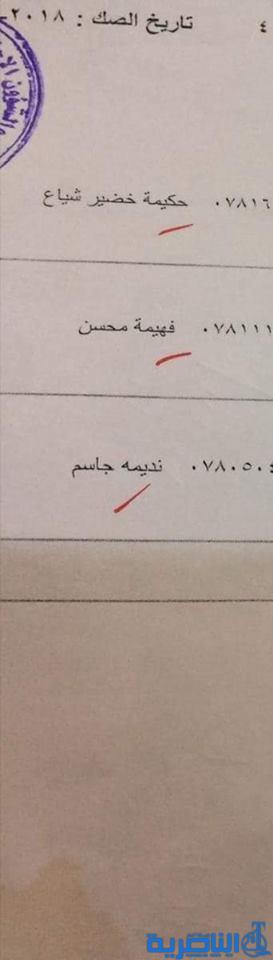 ٤ تاريخ الصك : ٢٠١٨-
٠٧٨١٦ حكيمة خضير شياع
٠٧٨١١١ فهيمة محسن
٠٧٨٠٥٠٤ نديمه جاسم
الناصرية